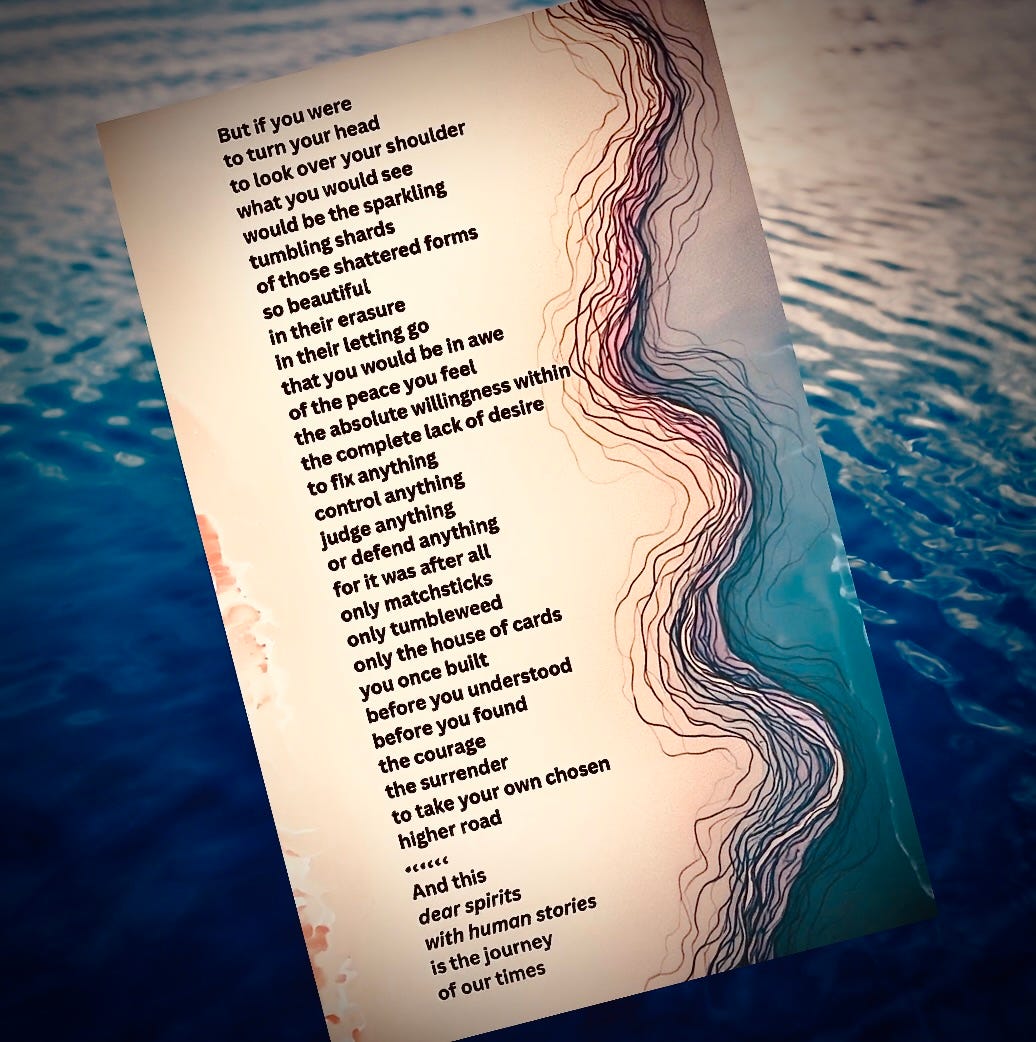 But if you were
to turn your head
to look over your shoulder
what you would see
would be the sparkling
tumbling shards
of those shattered forms
so beautiful
in their erasure
in their letting go
that you would be in awe
of the peace you feel
the absolute willingness within
the complete lack of desire
to fix anything
control anything
judge anything
or defend anything
for it was after all
only matchsticks
only tumbleweed
only the house of cards
you once built
before you understood
before you found
the courage
the surrender
to take your own chosen
higher road
‘‘‘‘‘‘
And this
dear spirits
with human stories
is the journey
of our times